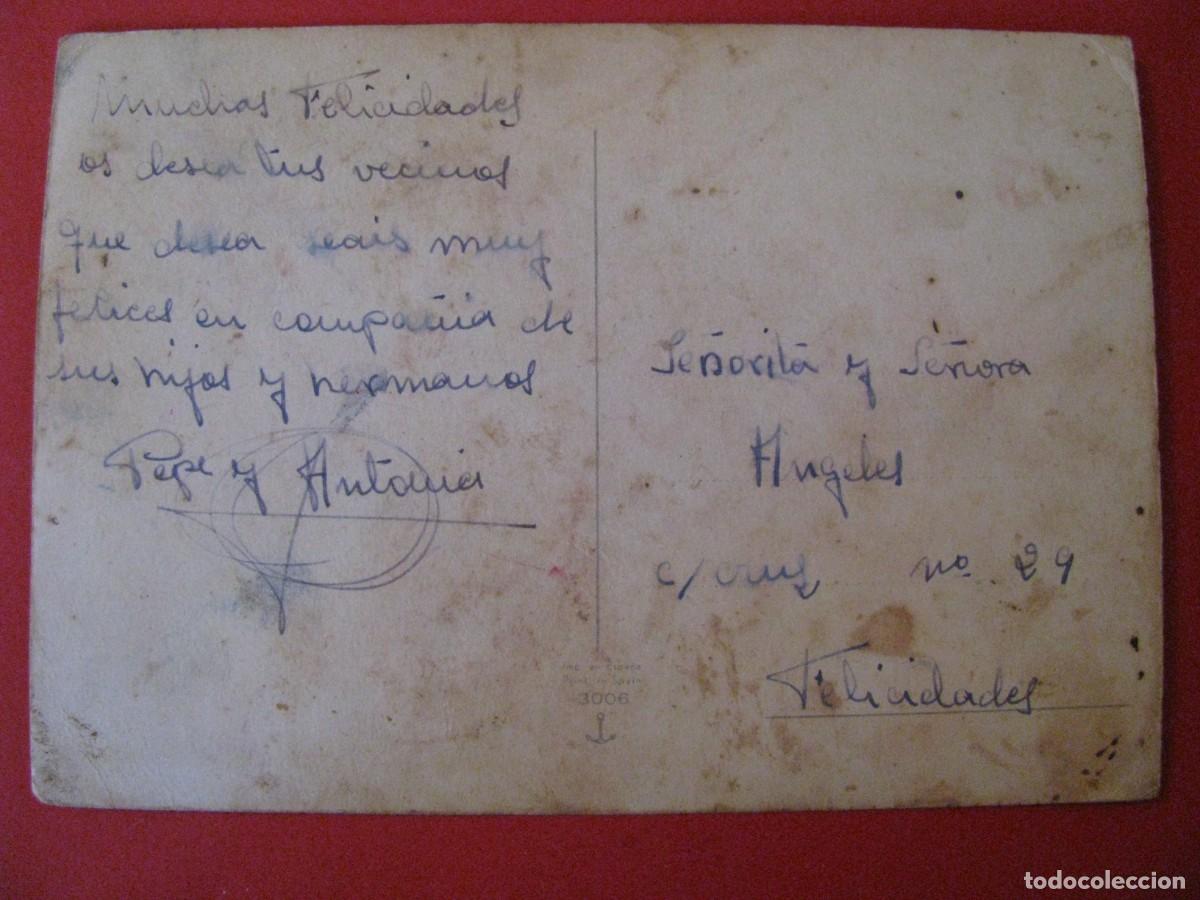 Muchas Felicidades
os desea tus vecinos
que desea seais muy
felices en compañia de
sus hijos y hermanos
Pepe y Antonia
Señorita y Señora
Angeles
c/ cruz nº 29
Felicidades
Imp. en España
Print. in Spain
3006
todocoleccion